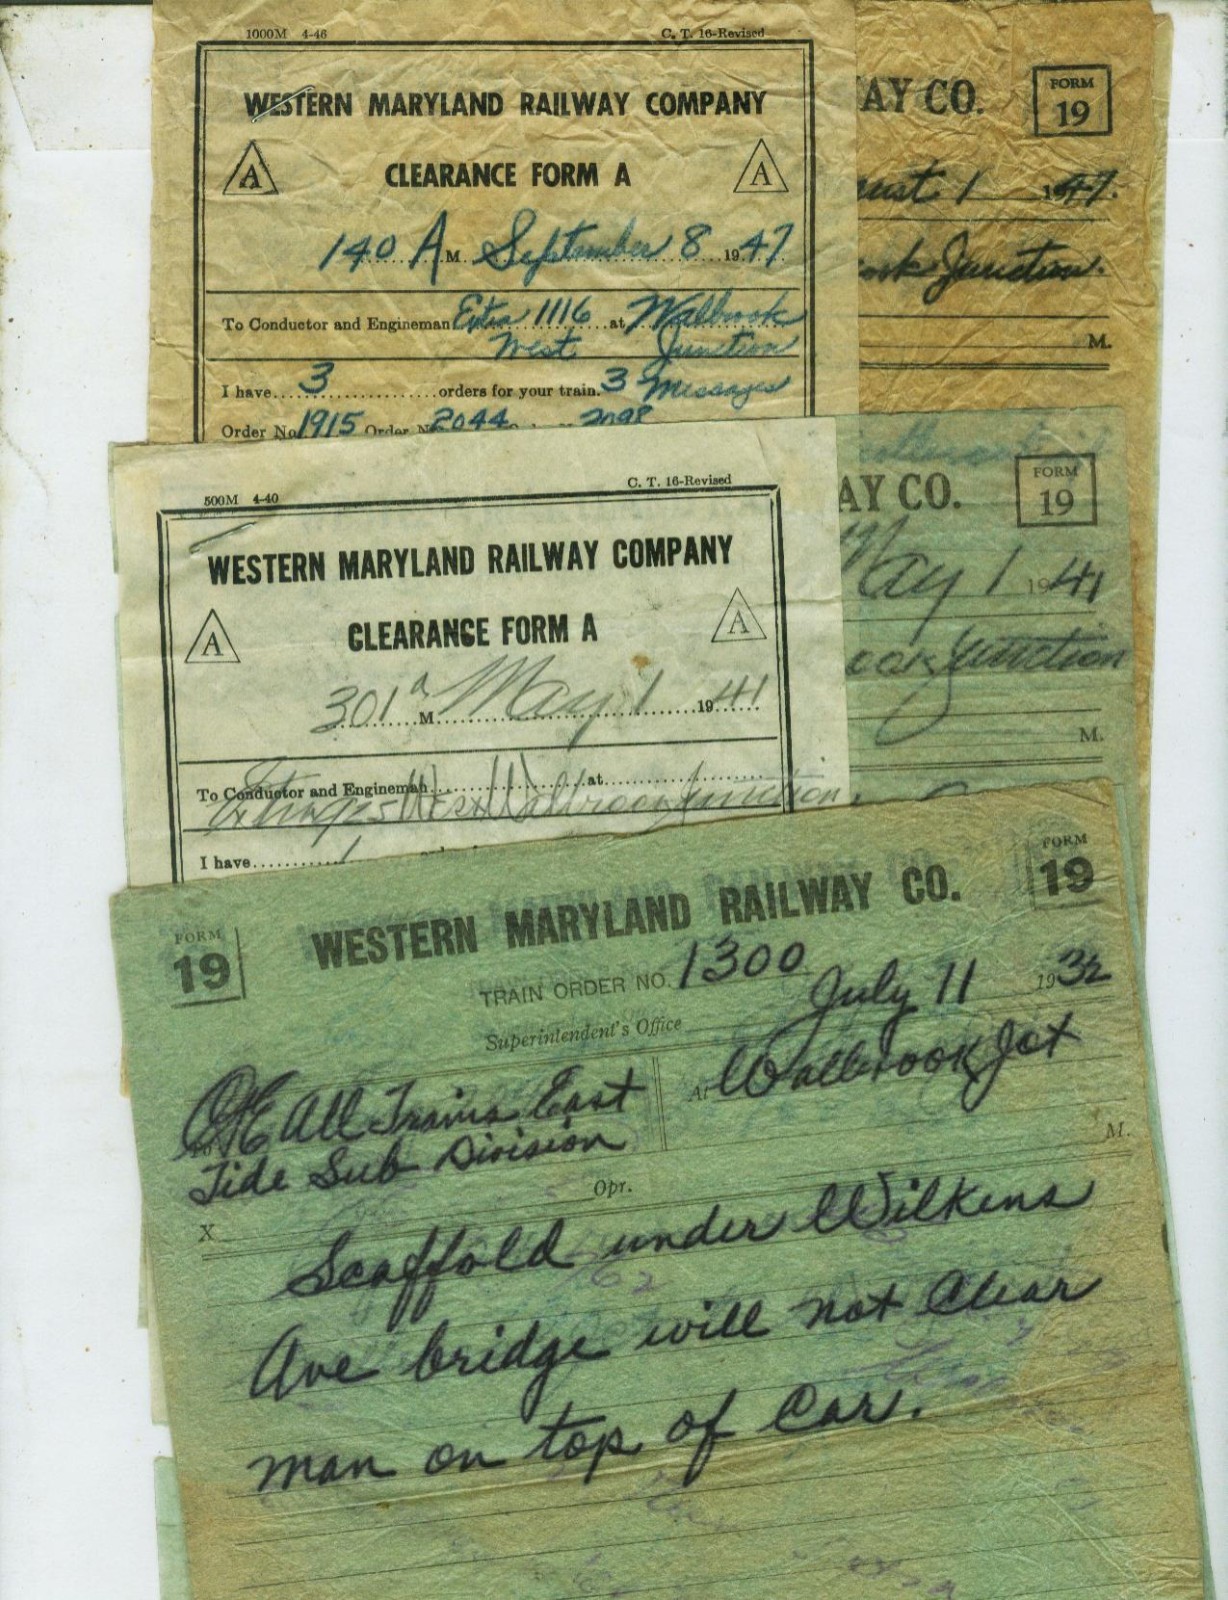 1000M 4-46 C. T. 16-Revised
WESTERN MARYLAND RAILWAY COMPANY
A CLEARANCE FORM A A
140 A M September 8 1947
To Conductor and Engineman Extra 1116 at Walbrook
West Junction
I have 3 orders for your train. 3 Messages
Order No 1915 Order No 2044 2098
AY CO. FORM
19
ust 1 1947.
ook Junction.
M.
500M 4-40 C. T. 16-Revised
WESTERN MARYLAND RAILWAY COMPANY
A CLEARANCE FORM A A
301 a M May 1 1941
To Conductor and Engineman at
West Walbrook Junction
I have 1
AY CO. FORM
19
May 1 1941
ook Junction
M.
FORM
19
WESTERN MARYLAND RAILWAY CO.
FORM
19
TRAIN ORDER NO. 1300
July 11 1932
Superintendent's Office
To C&E All Trains East At Walbrook Jct
Tide Sub Division
M.
X Opr.
Scaffold under Wilkens
Ave bridge will not Clear
man on top of Car.